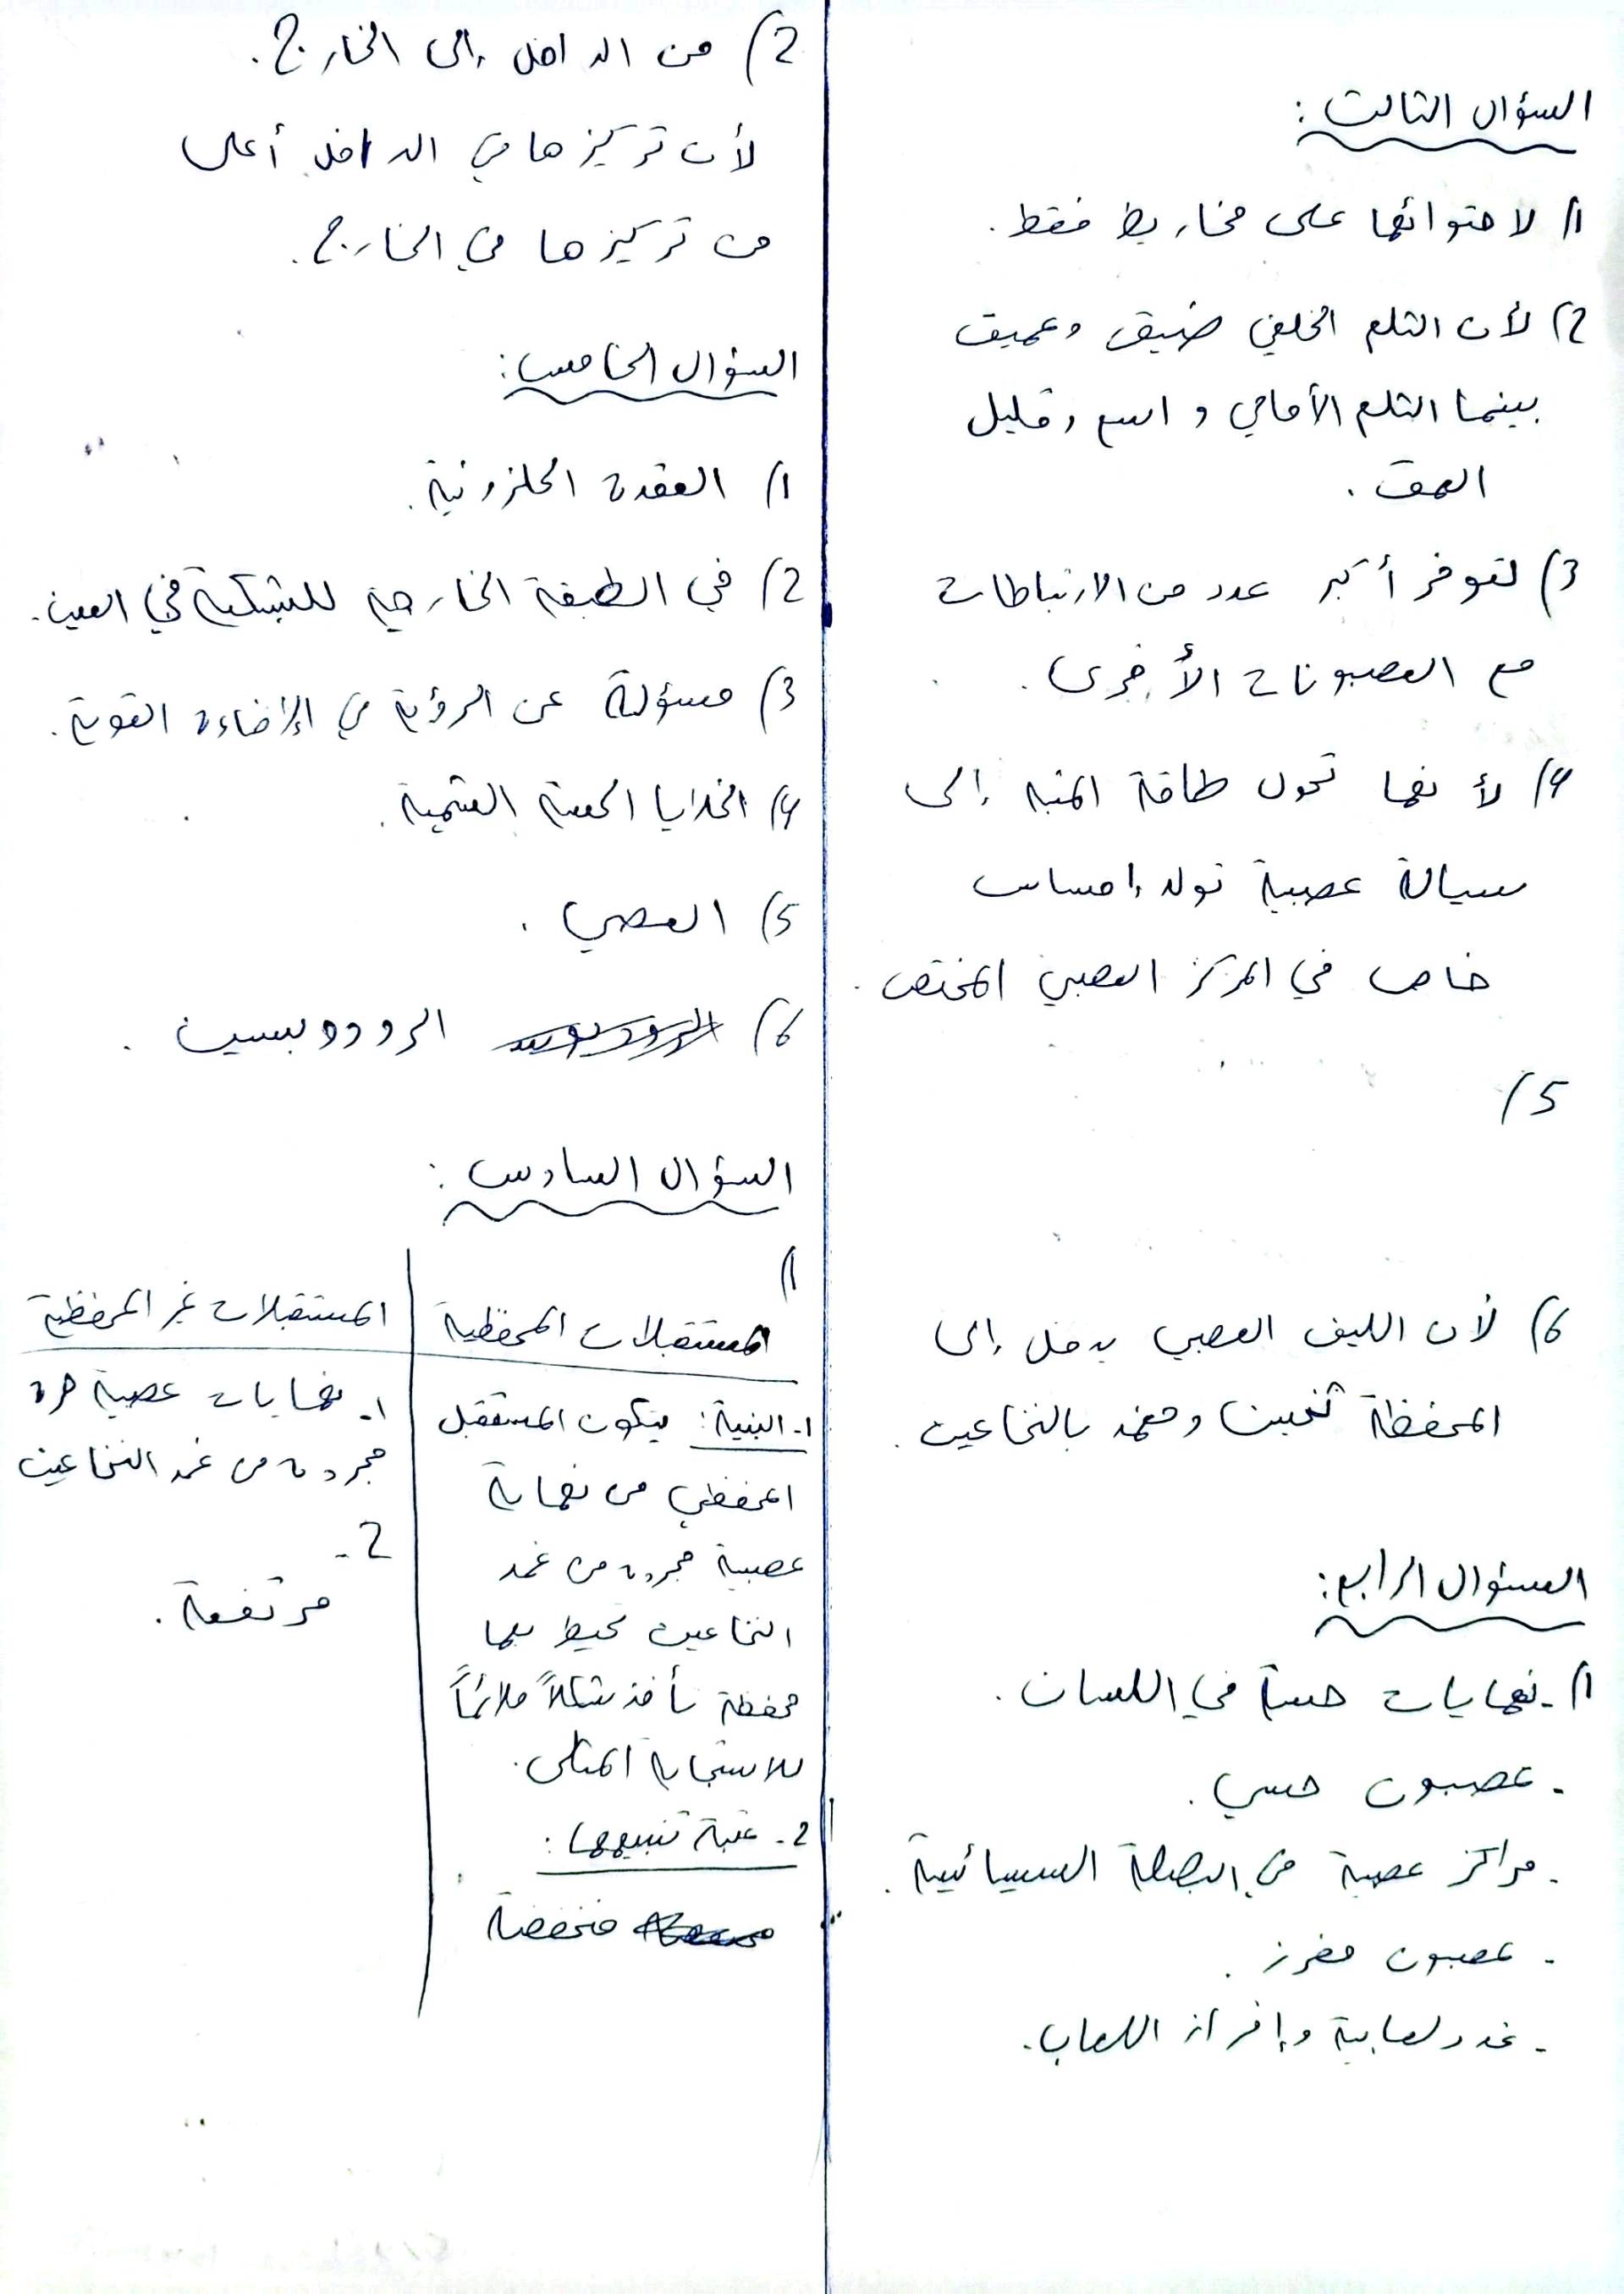 السؤال الثالث :
1) لاحتوائها على مخاريط فقط .
2) لأن الثلم الخلفي ضيق وعميق
بينما الثلم الأمامي واسع وقليل
العمق .
3) لتوفر أكبر عدد من الارتباطات
مع العصبونات الأخرى .
4) لأنها تحول طاقة المنبه إلى
سيالة عصبية تولد إحساس
خاص في المركز العصبي المختص .
5)
6) لأن الليف العصبي يدخل إلى
المحفظة ثخين ومغمد بالنخاعين .
السؤال الرابع :
1) - نهايات حسية في اللسان .
- عصبون حسي .
- مراكز عصبية في البصلة السيسائية .
- عصبون مفرز .
- غدد لعابية وإفراز اللعاب .
2) من الداخل إلى الخارج .
لأن تركيزها في الداخل أعلى
من تركيزها في الخارج .
السؤال الخامس :
1) العقدة الحلزونية .
2) في الطبقة الخارجية للشبكية في العين .
3) مسؤولة عن الرؤية في الإضاءة القوية .
4) الخلايا الحسية الشمية .
5) العصي .
6) الرودوبسين .
السؤال السادس :
1)
المستقبلات المحفظية
1- البنية : يتكون المستقبل
المحفظي من نهاية
عصبية مجردة من غمد
النخاعين تحيط بها
محفظة تأخذ شكلاً ملائماً
للاستجابة المثلى .
2- عتبة تنبيهها :
منخفضة
المستقبلات غير المحفظية
1- نهايات عصبية حرة
مجردة من غمد النخاعين
2-
مرتفعة .